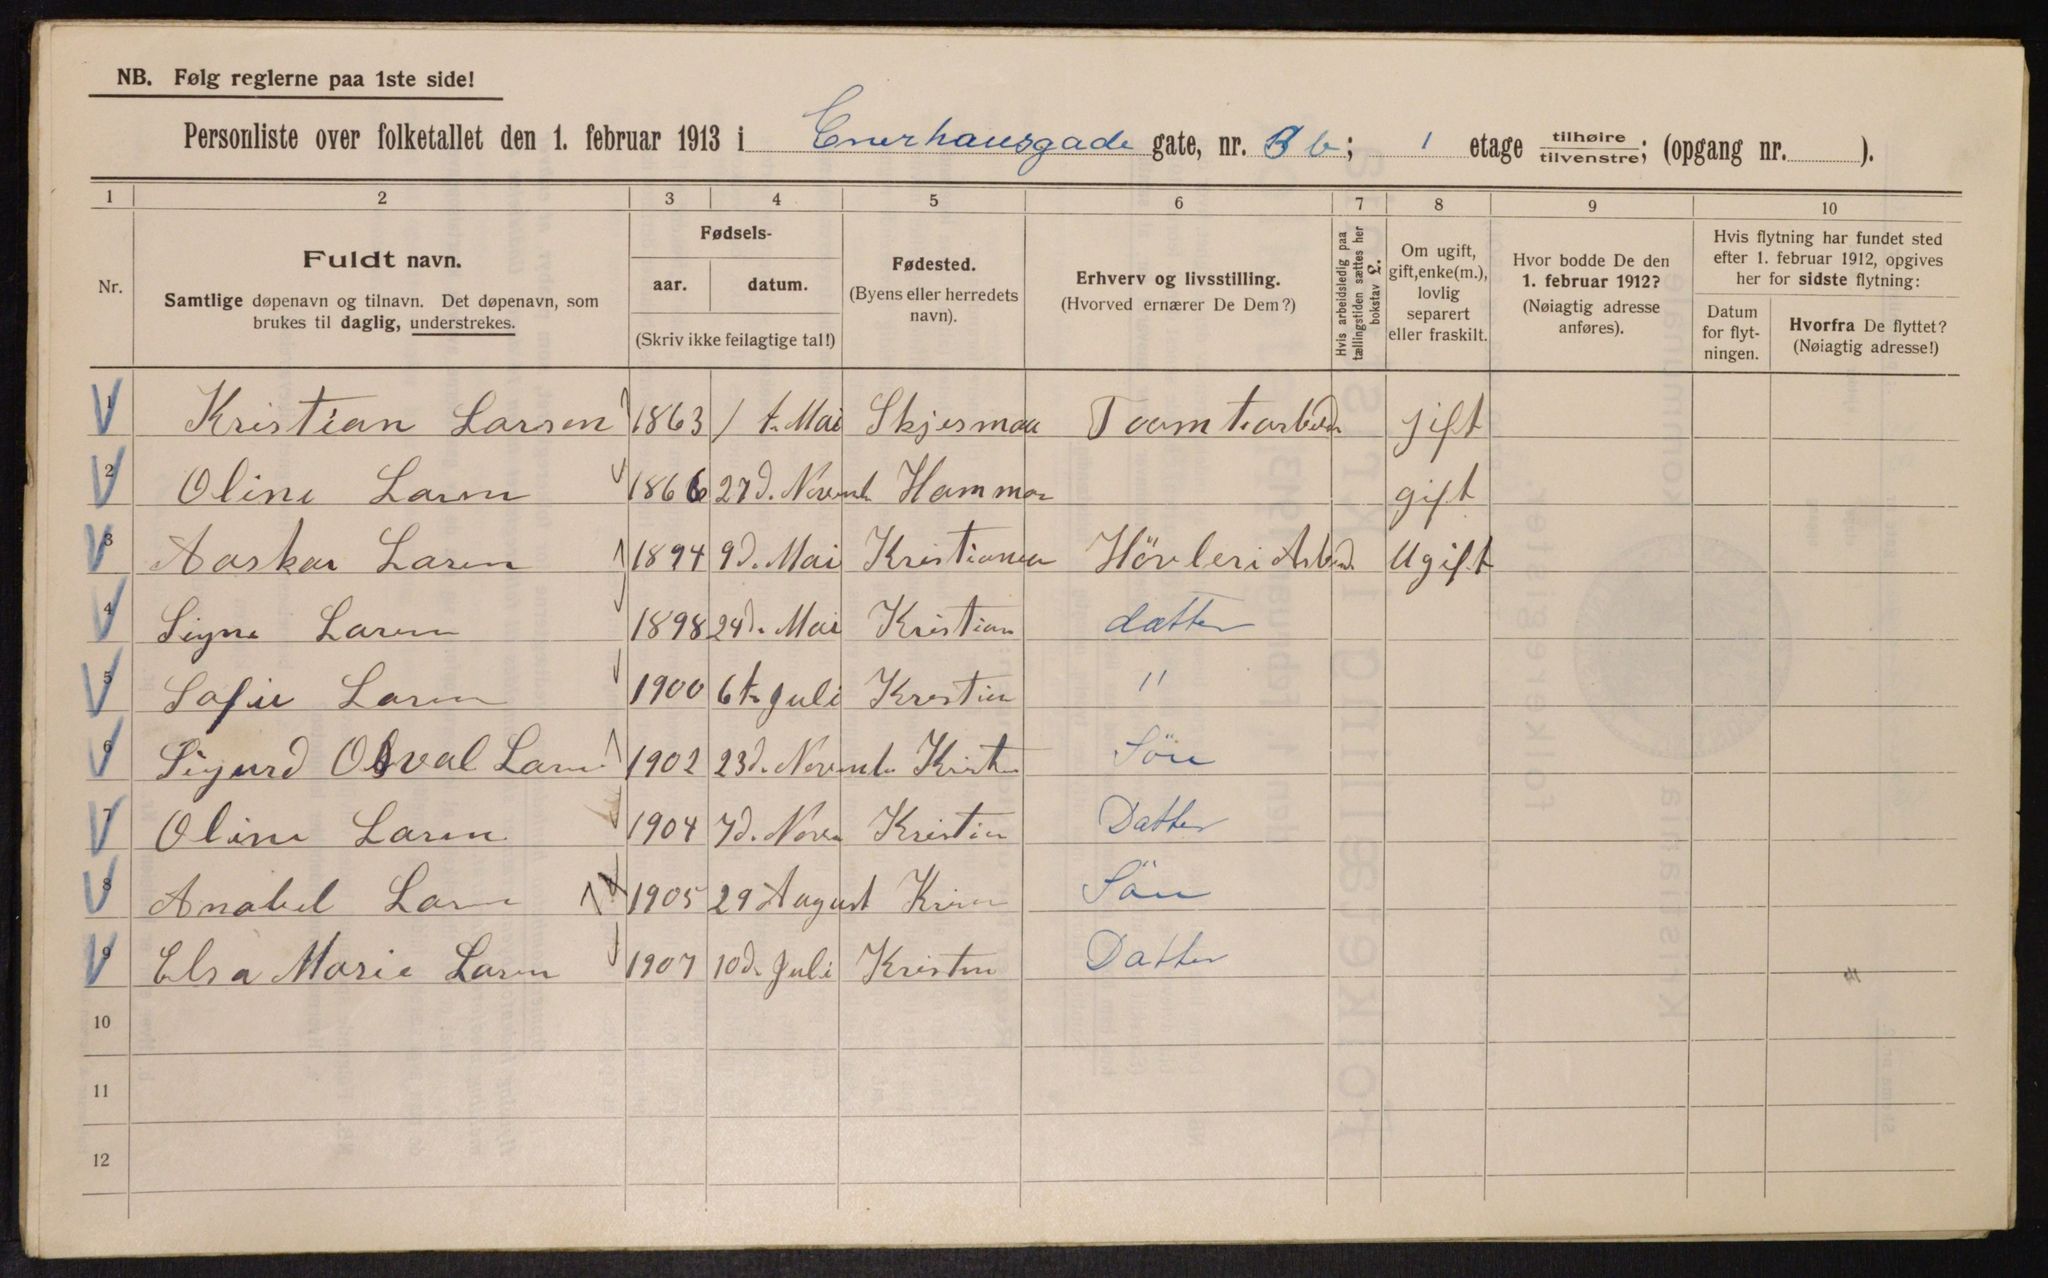 NB. Følg reglerne paa 1ste side!
Personliste over folketallet den 1. februar 1913 i Enerhausgade gate, nr. 3 b; 1 etage tilhøire / tilvenstre; (opgang nr. ).
1 2 3 4 5 6 7 8 9 10
Nr.
Fuldt navn.
Samtlige døpenavn og tilnavn. Det døpenavn, som
brukes til daglig, understrekes.
Fødsels-
aar. datum.
(Skriv ikke feilagtige tal!)
Fødested.
(Byens eller herredets
navn).
Erhverv og livsstilling.
(Hvorved ernærer De Dem?)
Hvis arbeidsledig paa
tællingstiden sættes her
bokstav L.
Om ugift,
gift, enke(m.),
lovlig
separert
eller fraskilt.
Hvor bodde De den
1. februar 1912?
(Nøiagtig adresse
anføres).
Hvis flytning har fundet sted
efter 1. februar 1912, opgives
her for sidste flytning:
Datum
for flyt-
ningen.
Hvorfra De flyttet?
(Nøiagtig adresse!)
1 Kristian Larsen 1863 1 t. Mai Skjesmaa Toomtearbeder gift
2 Oline Laren 1866 27d. Novemb Hammar gift
3 Aaskar Laren 1894 9d. Mai Kristiania Hövleri Arbed Ugift
4 Signe Laren 1898 24d. Mai Kristian datter
5 Sofie Laren 1900 6t. Juli Kristian "
6 Sigurd Osval Laren 1902 23d. Novemb Krist Sön
7 Oline Laren 1904 7d. Novem Kristin Datter
8 Anabel Laren 1905 29 August Sön
9 Elsa Marie Laren 1907 10d. Juli Kristin Datter
10
11
12